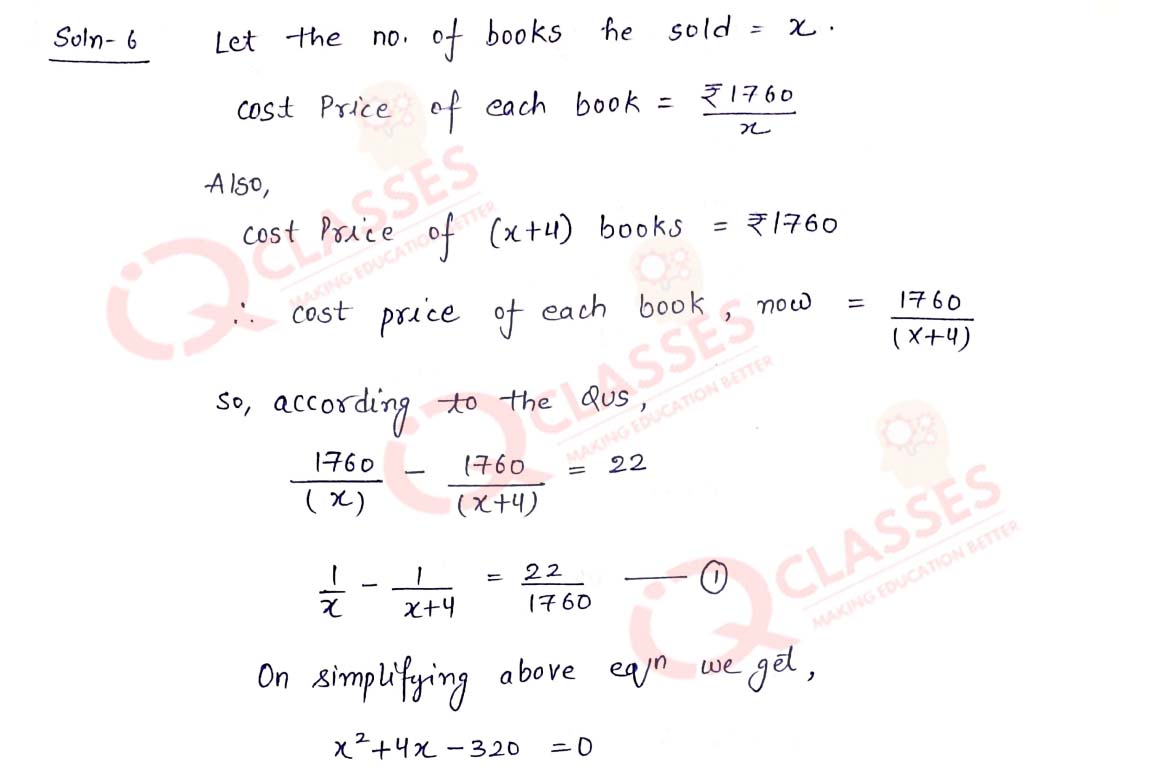 Soln-6 Let the no. of books he sold = x.
cost Price of each book = ₹1760/x
Also,
cost Price of (x+4) books = ₹1760
∴ cost price of each book, now = 1760/(x+4)
So, according to the Qus,
1760/(x) - 1760/(x+4) = 22
1/x - 1/x+4 = 22/1760 —— ①
On simplifying above eqn we get,
x²+4x-320 =0
iQ CLASSES
MAKING EDUCATION BETTER
iQ CLASSES
MAKING EDUCATION BETTER
iQ CLASSES
MAKING EDUCATION BETTER